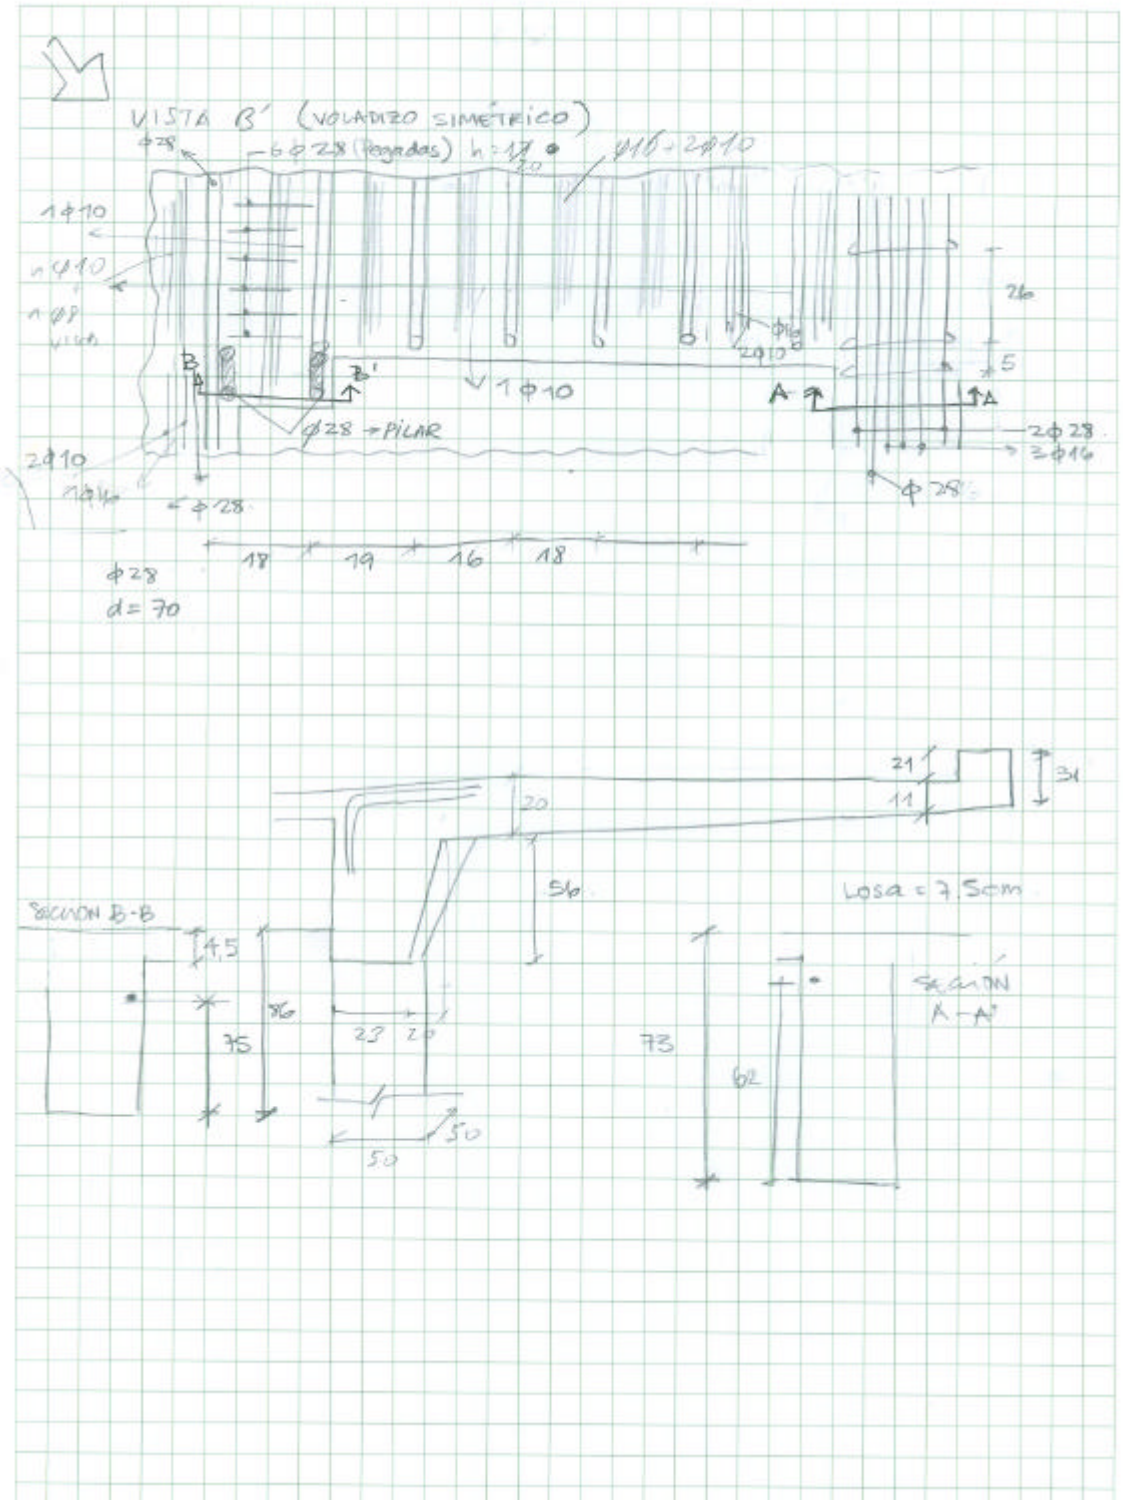 VISTA B' (VOLADIZO SIMÉTRICO)
ϕ28
6ϕ28 (Pegadas) h=
20
ϕ16+2ϕ10
1ϕ10
nϕ10
nϕ8
26
5
B
B'
1ϕ10
ϕ16
2ϕ10
A
A
ϕ28→PILAR
2ϕ28
3ϕ16
ϕ28
2ϕ10
1ϕ16
ϕ28
18
19
16
18
ϕ28
d=70
21
11
31
20
56
Losa=7.5cm
SECCIÓN B-B
4,5
86
75
23
20
50
50
73
62
SECCIÓN
A-A'